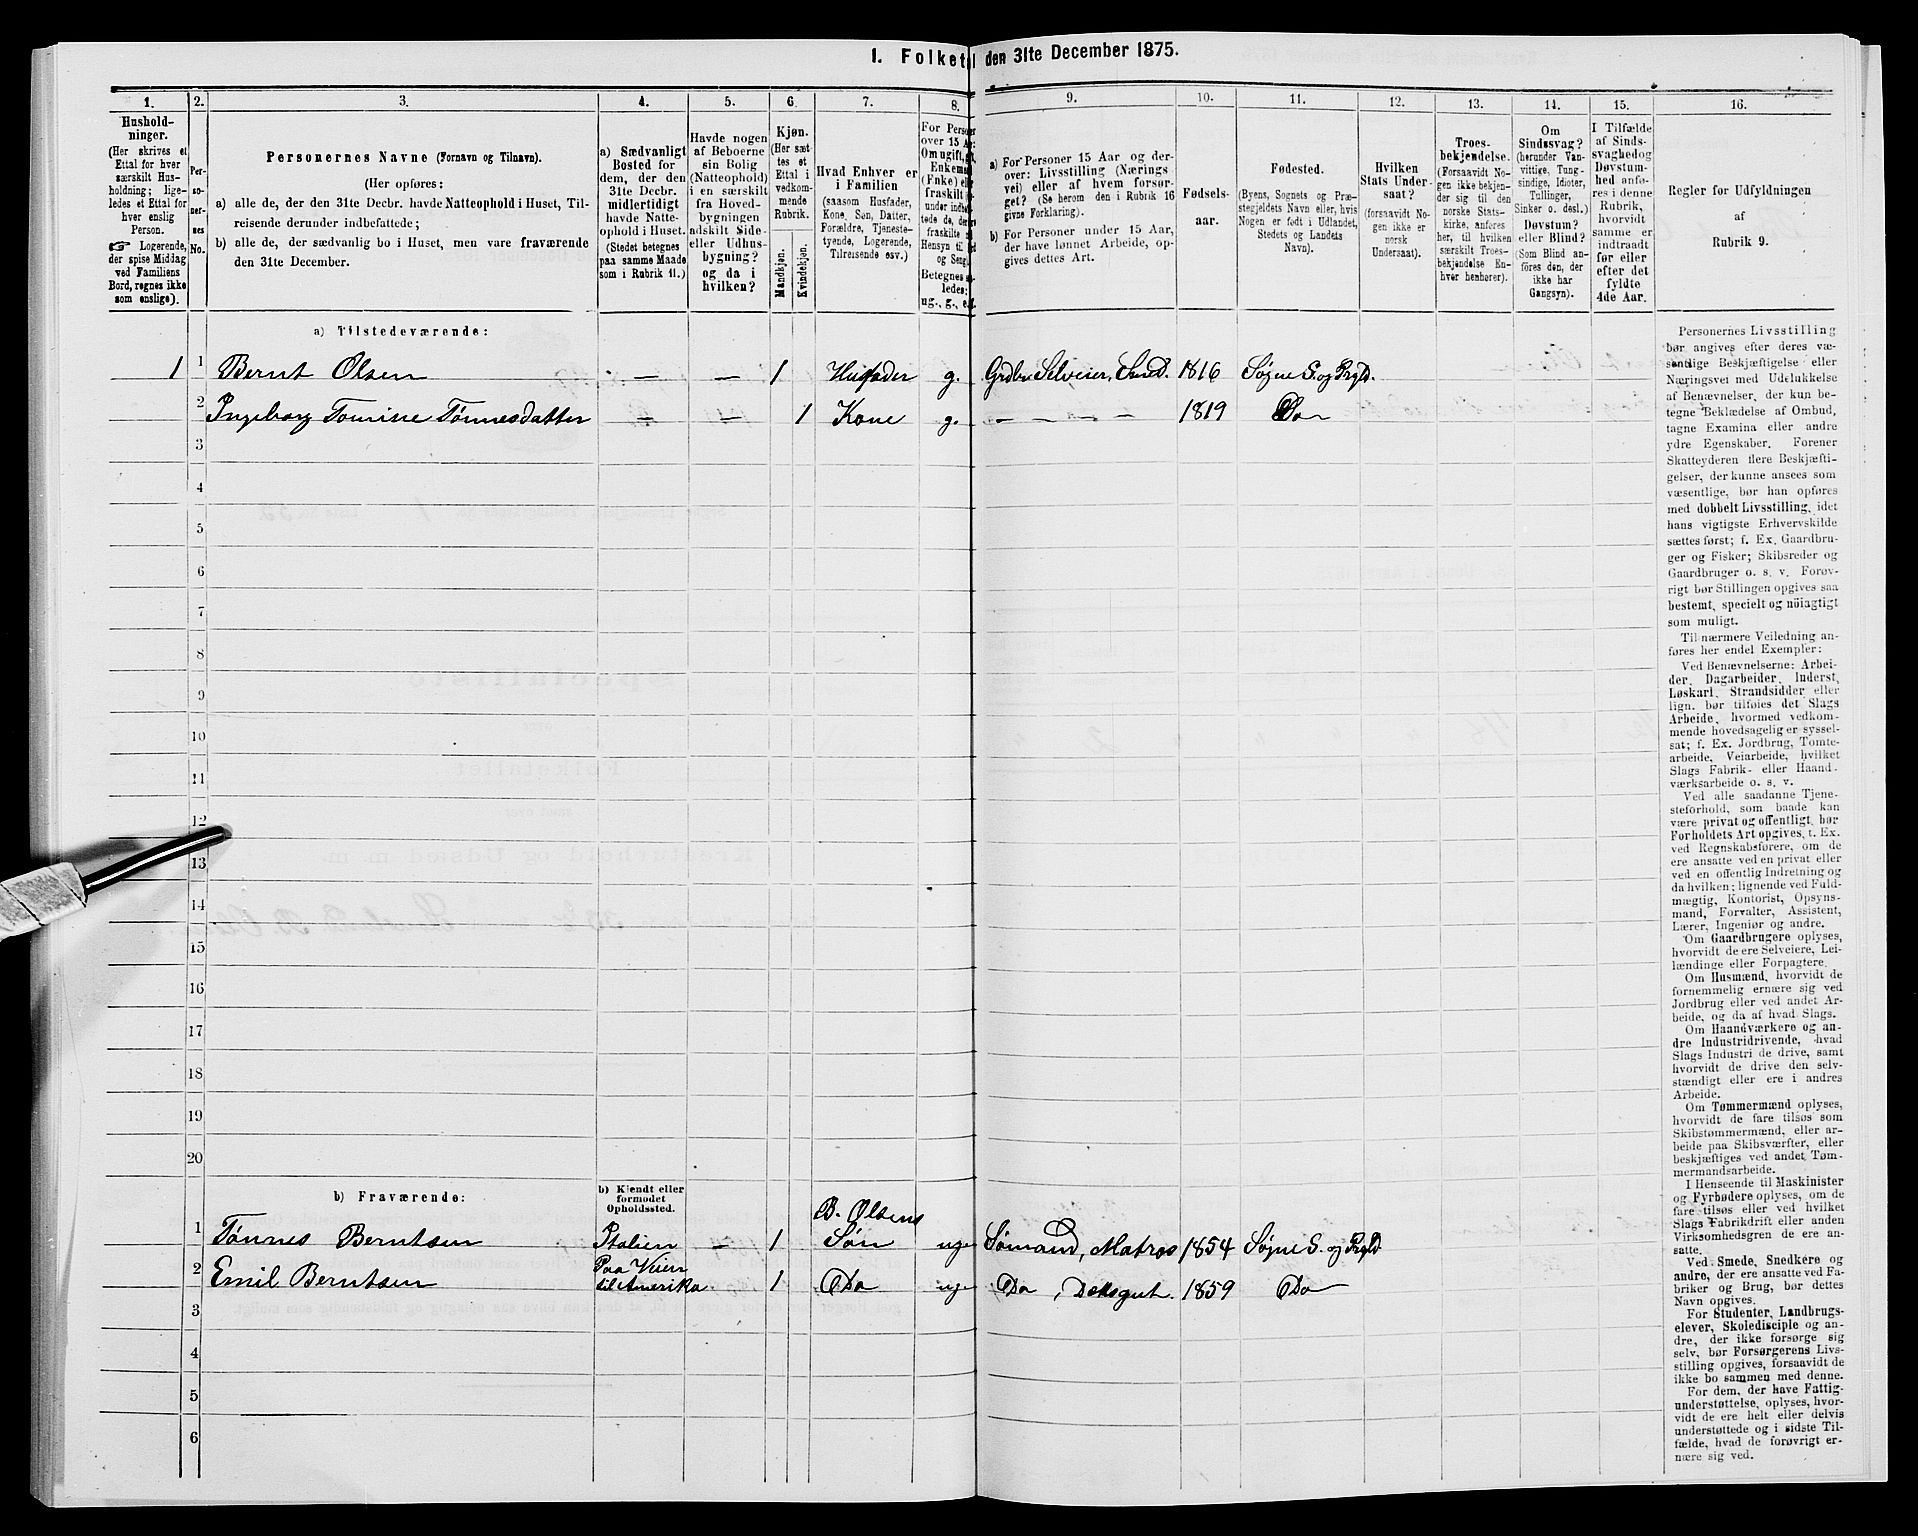 I. Folketal den 31te December 1875.
1. 2. 3. 4. 5. 6. 7. 8. 9. 10. 11. 12. 13. 14. 15. 16.
Hushold-
ninger.
(Her skrives et
Ettal for hver
særskilt Hus-
holdning; lige-
ledes et Ettal for
hver enslig
Person.
☞ Logerende,
der spise Middag
ved Familiens
Bord, regnes ikke
som enslige).
Per-
so-
ner-
nes
No.
Personernes Navne (Fornavn og Tilnavn).
(Her opføres:
a) alle de, der den 31te Decbr. havde Natteophold i Huset, Til-
reisende derunder indbefattede;
b) alle de, der sædvanlig bo i Huset, men vare fraværende
den 31te December.
a) Sædvanligt
Bosted for
dem, der den
31te Decbr.
midlertidigt
havde Natte-
ophold i Huset.
(Stedet betegnes
paa samme Maade
som i Rubrik 11.)
Havde nogen
af Beboerne
sin Bolig
(Natteophold)
i en særskilt
fra Hoved-
bygningen
adskilt Side-
eller Udhus-
bygning?
og da i
hvilken?
Kjøn.
(Her sæt-
tes et
Ettal i
vedkom-
mende
Rubrik.
Mandkjøn.
Kvindekjøn.
Hvad Enhver er
i Familien
(saasom Husfader,
Kone, Søn, Datter,
Forældre, Tjeneste-
tyende, Logerende,
Tilreisende osv.)
For Perso
over 15 A
Om ugift, g
Enkema
(Enke) el
fraskilt
under indb
tede de, de
fraskilte
Hensyn til
og Seng.
Betegnes
ledes:
ug., g., e
a) For Personer 15 Aar og der-
over: Livsstilling (Nærings
vei) eller af hvem forsør-
get? (Se herom den i Rubrik 16
givne Forklaring).
b) For Personer under 15 Aar,
der have lønnet Arbeide, op-
gives dettes Art.
Fødsels-
aar.
Fødested.
(Byens, Sognets og Præ-
stegjeldets Navn eller, hvis
Nogen er født i Udlandet,
Stedets og Landets
Navn).
Hvilken
Stats Under-
saat?
(forsaavidt No-
gen ikke er
norsk
Undersaat).
Troes-
bekjendelse.
(Forsaavidt No-
gen ikke bekjen-
der sig til den
norske Stats-
kirke, anføres
her, til hvilken
særskilt Troes-
bekjendelse En-
hver henhører).
Om
Sindssvag?
(herunder Van-
vittige, Tung-
sindige, Idioter,
Tullinger,
Sinker o. desl.)
Døvstum?
eller Blind?
(Som Blind an-
føres den, der
ikke har
Gangsyn).
I Tilfælde
af Sinds-
svaghed og
Døvstum-
hed anfø-
res i denne
Rubrik,
hvorvidt
samme er
indtraadt
før eller
efter det
fyldte
4de Aar.
Regler for Udfyldningen
af
Rubrik 9.
a) Tilstedeværende:
1 1 Bernt Olsen — — 1 Husfader g. Grdbr. Selveier, Smed. 1816 Søgne S. og Prgld.
2 Ingeborg Tomine Tønnesdatter — — 1 Kone g. — — — 1819 Do
3
4
5
6
7
8
9
10
11
12
13
14
15
16
17
18
19
20
b) Fraværende:
b) Kjendt eller
formodet
Opholdssted.
B. Olsens
1 Tønnes Berntsen Italien — 1 Søn ug. Sømand, Matros 1854 Søgne S. og Prgld
Paa Veien
2 Emil Berntsen til Amerika 1 Do ug. Do, Deksgut. 1859 Do
3
4
5
6
Personernes Livsstilling
bør angives efter deres væ-
sentlige Beskjæftigelse eller
Næringsvei med Udelukkelse
af Benævnelser, der kun be-
tegne Beklædelse af Ombud,
tagne Examina eller andre
ydre Egenskaber. Forener
Skatteyderen flere Beskjæfti-
gelser, der kunne ansees som
væsentlige, bør han opføres
med dobbelt Livsstilling, idet
hans vigtigste Erhvervskilde
sættes først; f. Ex. Gaardbru-
ger og Fisker; Skibsreder og
Gaardbruger o. s. v. Forøv-
rigt bør Stillingen opgives saa
bestemt, specielt og nøiagtigt
som muligt.
Til nærmere Veiledning an-
føres her endel Exempler:
Ved Benævnelserne: Arbei-
der, Dagarbeider, Inderst,
Løskarl, Strandsidder eller
lign. bør tilføies det Slags
Arbeide, hvormed vedkom-
mende hovedsagelig er syssel-
sat; f. Ex. Jordbrug, Tomte-
arbeide, Veiarbeide, hvilket
Slags Fabrik- eller Haand-
værksarbeide o. s. v.
Ved alle saadanne Tjene-
steforhold, som baade kan
være privat og offentligt, bør
Forholdets Art opgives, t. Ex.
ved Regnskabsførere, om de
ere ansatte ved en privat eller
ved en offentlig Indretning og
da hvilken; lignende ved Fuld-
mægtig, Kontorist, Opsyns-
mand, Forvalter, Assistent,
Lærer, Ingeniør og andre.
Om Gaardbrugere oplyses,
hvorvidt de ere Selveiere, Lei-
lændinge eller Forpagtere.
Om Husmænd, hvorvidt de
fornemmelig ernære sig ved
Jordbrug eller ved andet Ar-
beide, og da af hvad Slags.
Om Haandværkere og an-
dre Industridrivende, hvad
Slags Industri de drive, samt
hvorvidt de drive den selv-
stændigt eller ere i andres
Arbeide.
Om Tømmermænd oplyses,
hvorvidt de fare tilsøs som
Skibstømmermænd, eller ar-
beide paa Skibsværfter, eller
beskjæftiges ved andet Tøm-
mermandsarbeide.
I Henseende til Maskinister
og Fyrbødere oplyses, om de
fare tilsøs eller ved hvilket
Slags Fabrikdrift eller anden
Virksomhedsgren de ere an-
satte.
Ved Smede, Snedkere og
andre, der ere ansatte ved Fa-
briker og Brug, bør dettes
Navn opgives.
For Studenter, Landbrugs-
elever, Skoledisciple og an-
dre, der ikke forsørge sig
selv, bør Forsørgerens Livs-
stilling opgives, forsaavidt de
ikke bo sammen med denne.
For dem, der have Fattig-
understøttelse, oplyses, hvor-
vidt de ere helt eller delvis
understøttede og i sidste Til-
fælde, hvad de forøvrigt er-
nære sig ved.